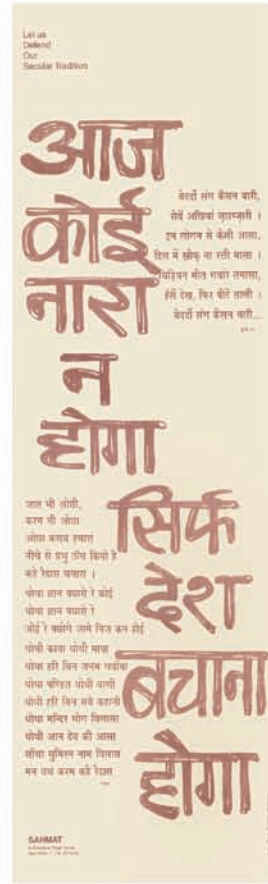 Let us
Defend
Our
Secular Tradition
आज
कोई
नारा
न
होगा
सिर्फ
देश
बचाना
होगा
बेदर्दी संग कैसन यारी,
रोवें अखियां ज़ारम्ज़ारी ।
इन लोगन से कैसी आसा,
दिल में ख़ौफ़ ना रत्ती मासा ।
चिड़ियन मौत गवांरा तमासा,
हँसें देख, फिर पीटें ताली ।
बेदर्दी संग कैसन यारी...
जात भी ओछी,
करम भी ओछा
ओछा कसब हमारा
नीचे से प्रभु ऊँच कियो है
कहे रैदास चमारा ।
थोथा ज्ञान पछारो रे कोई
थोथा ज्ञान पछारो रे
जोई रे पछोरो जामे निज कन होई
थोथी काया थोथी माया
थोथा हरि बिन जनम गवांया
थोथा पण्डित थोथी वाणी
थोथी हरि बिन सबै कहानी
थोथा मन्दिर भोग विलासा
थोथी आन देव की आसा
साँचा सुमिरन नाम विसास
मन वच करम कहै रैदास
SAHMAT